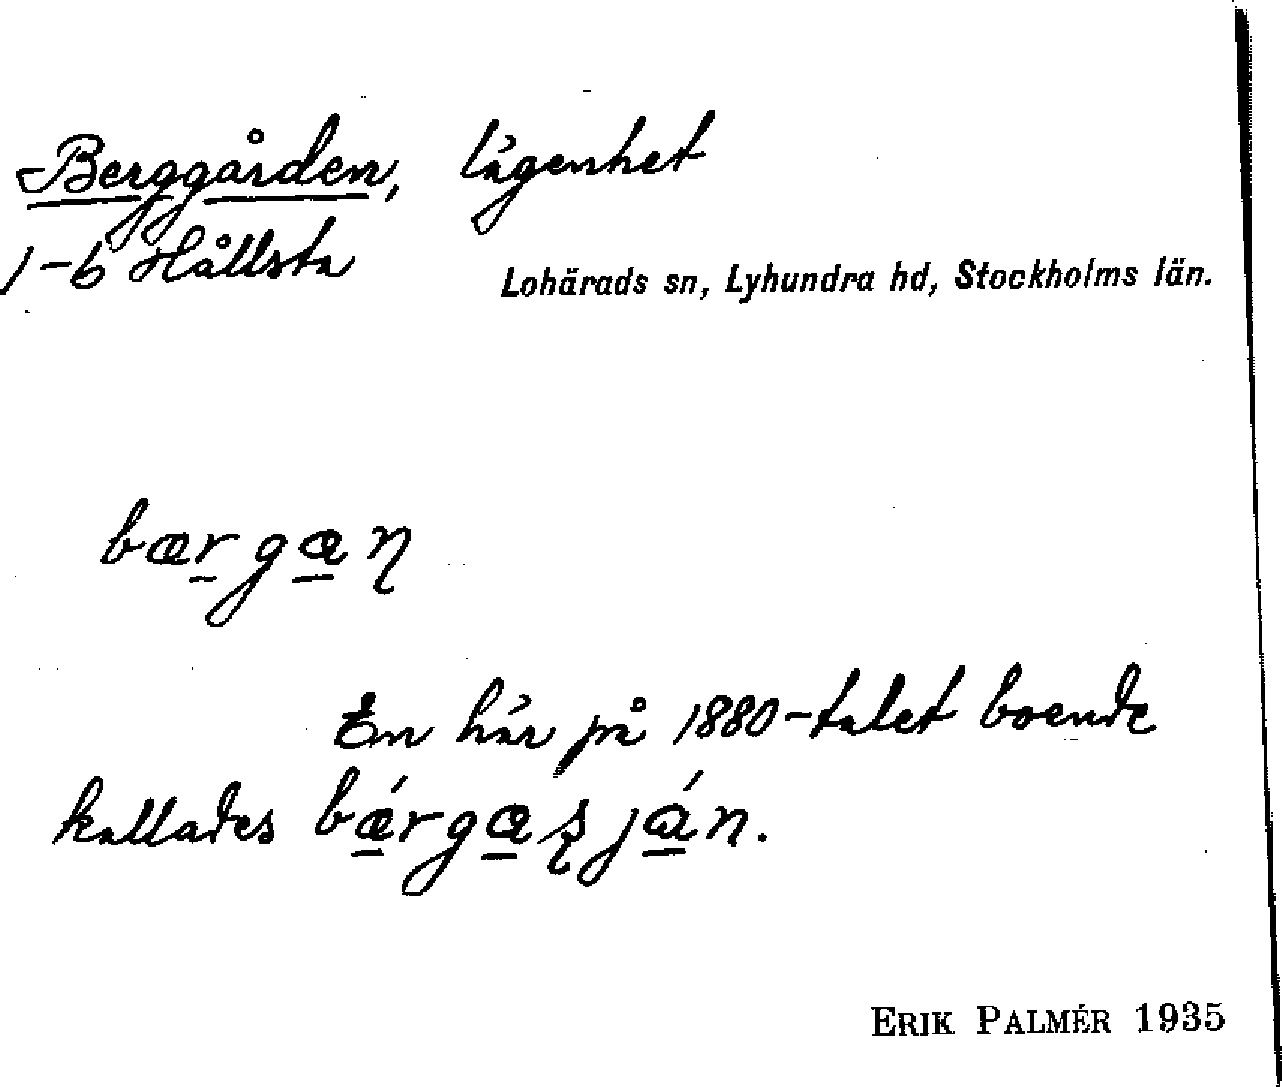 Berggården, lägenhet
1-6 Hållsta
Lohärads sn, Lyhundra hd, Stockholms län.
bærgaɳ
En här på 1880-talet boende
kallades bǽrgaʂján.
ERIK PALMÉR 1935